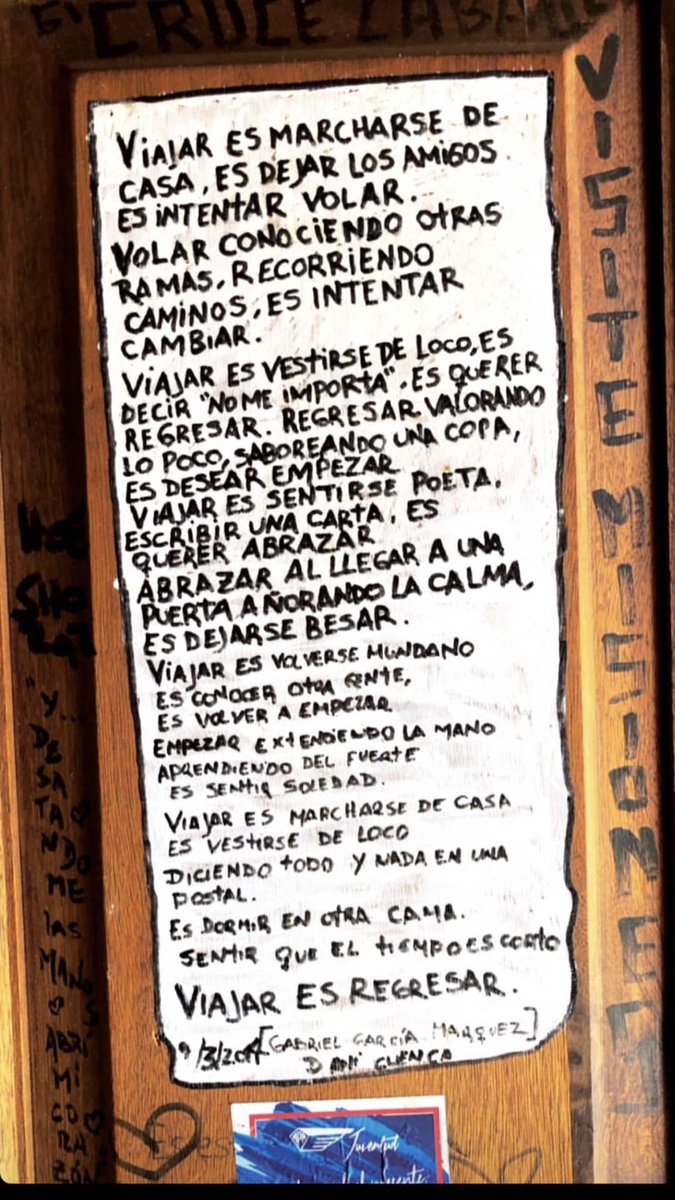 CRUCE CABALLE
VIAJAR ES MARCHARSE DE
CASA, ES DEJAR LOS AMIGOS.
ES INTENTAR VOLAR.
VOLAR CONOCIENDO OTRAS
RAMAS, RECORRIENDO
CAMINOS, ES INTENTAR
CAMBIAR.
VIAJAR ES VESTIRSE DE LOCO, ES
DECIR "NO ME IMPORTA". ES QUERER
REGRESAR. REGRESAR VALORANDO
LO POCO, SABOREANDO UNA COPA,
ES DESEAR EMPEZAR
VIAJAR ES SENTIRSE POETA,
ESCRIBIR UNA CARTA, ES
QUERER ABRAZAR
ABRAZAR AL LLEGAR A UNA
PUERTA AÑORANDO LA CALMA,
ES DEJARSE BESAR.
VIAJAR ES VOLVERSE MUNDANO
ES CONOCER OTRA GENTE,
ES VOLVER A EMPEZAR
EMPEZAR EXTENDIENDO LA MANO
APRENDIENDO DEL FUERTE
ES SENTIR SOLEDAD.
VIAJAR ES MARCHARSE DE CASA
ES VESTIRSE DE LOCO
DICIENDO TODO Y NADA EN UNA
POSTAL.
ES DORMIR EN OTRA CAMA.
SENTIR QUE EL TIEMPO ES CORTO
VIAJAR ES REGRESAR.
[GABRIEL GARCÍA MARQUEZ]
DANI CUENCA
VISITE MISIONES
"Y... DESATANDOME las MANOS ABRÍ MI CORAZÓN
Juventud